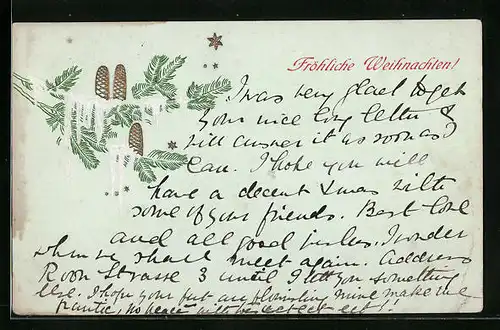 Fröhliche Weihnachten!
I was very glad to get
your nice long letter &
will answer it as soon as I
can. I hope you will
have a decent Xmas with
some of your friends. Best love
and all good wishes. I wonder
when we shall meet again. Address
Roon Strasse 3 until I tell you something
else. I hope your make me
frantic, no peace will be